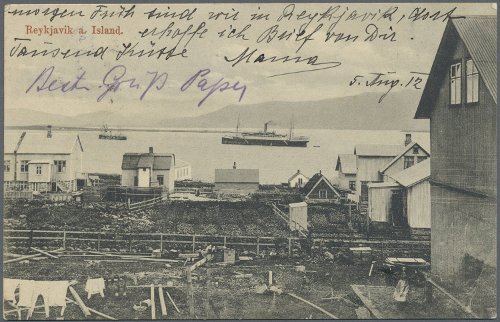 morgen Früh sind wir in Reykjavik, dort
Reykjavik a. Island.
erhoffe ich Brief von Dir.
Tausend Küsse
Mama
Beste Grüß Papa
5. Aug. 12